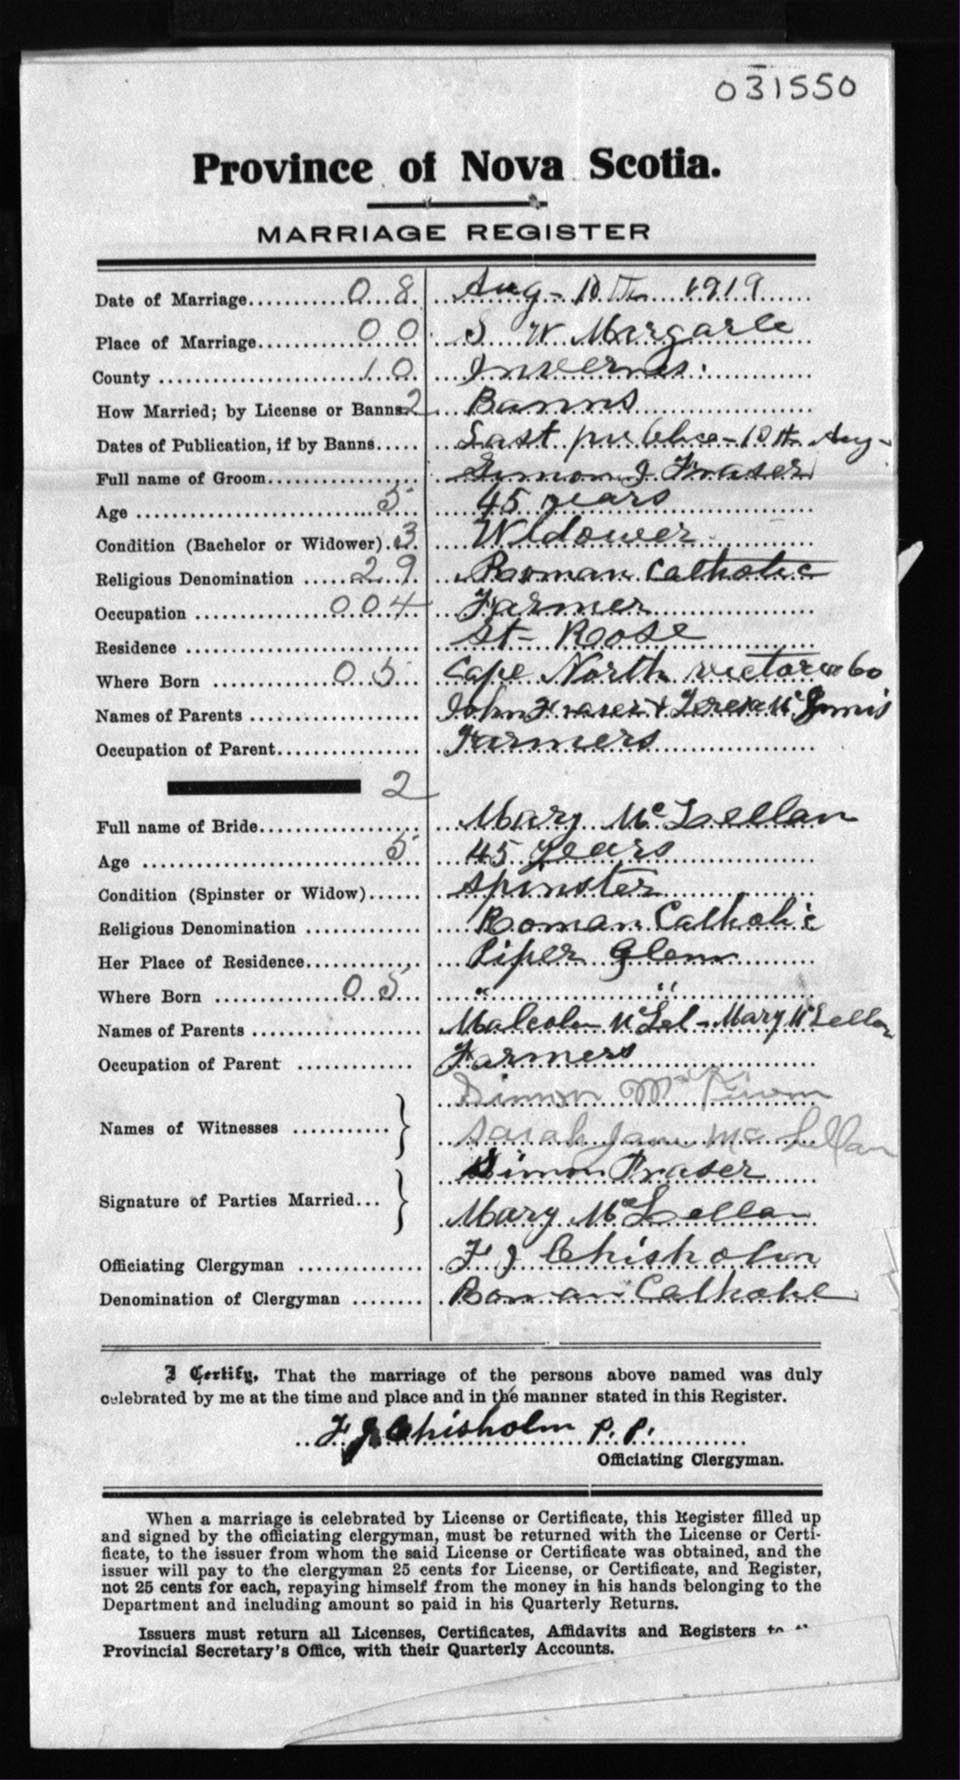 031550
Province of Nova Scotia.
MARRIAGE REGISTER
Date of Marriage........... 0 8 Aug - 10th 1919
Place of Marriage........... 0 0 S W Margaree
County ........... 1 0 Inverness
How Married; by License or Banns. 2 Banns
Dates of Publication, if by Banns..... Last publice - 10th Aug -
Full name of Groom........... Simon J Fraser
Age ........... 5 45 years
Condition (Bachelor or Widower). 3 Widower
Religious Denomination ..... 2 9 Roman Catholic
Occupation ........... 0 0 4 Farmer
Residence ........... St - Rose
Where Born ........... 0 5 Cape North victoria Co
Names of Parents ........... John Fraser &
Occupation of Parent........... Farmers
2
Full name of Bride........... Mary McLellan
Age ........... 5 45 years
Condition (Spinster or Widow)...... Spinster
Religious Denomination ........... Roman Catholic
Her Place of Residence........... Piper Glenn
Where Born ........... 0 5 " "
Names of Parents ........... Malcolm McLel - Mary McLellan
Occupation of Parent ........... Farmers
Simon
Names of Witnesses ...........
Sarah Jane McLellan
Simon Fraser
Signature of Parties Married...
Mary McLellan
Officiating Clergyman ........... F J Chisholm
Denomination of Clergyman ........ Roman Catholic
I Certify, That the marriage of the persons above named was duly
celebrated by me at the time and place and in the manner stated in this Register.
F J Chisholm P. P.
Officiating Clergyman.
When a marriage is celebrated by License or Certificate, this Register filled up
and signed by the officiating clergyman, must be returned with the License or Certi-
ficate, to the issuer from whom the said License or Certificate was obtained, and the
issuer will pay to the clergyman 25 cents for License, or Certificate, and Register,
not 25 cents for each, repaying himself from the money in his hands belonging to the
Department and including amount so paid in his Quarterly Returns.
Issuers must return all Licenses, Certificates, Affidavits and Registers to
Provincial Secretary's Office, with their Quarterly Accounts.